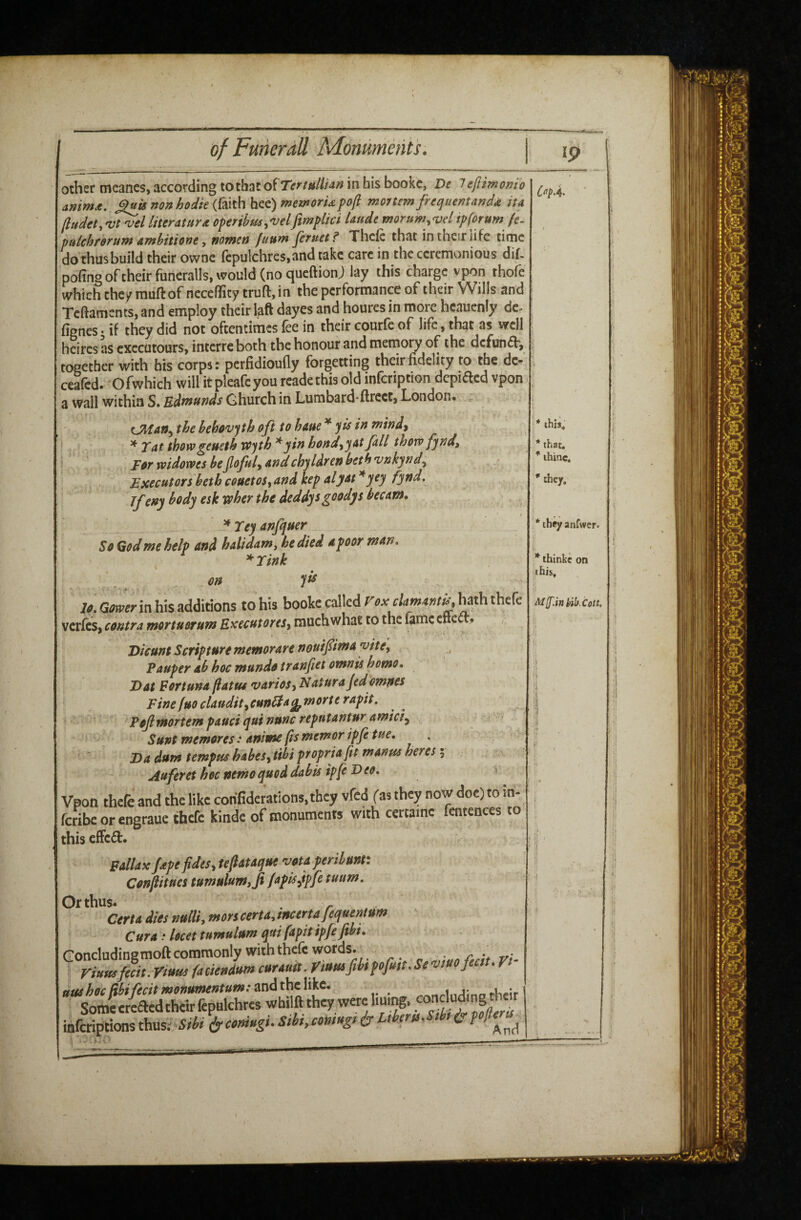 of Funerall Monuments.
19
other meanes, according to that of Tertullian in his booke, De Testimonio
animæ. Quis non hodie (saith hee) memoriæ post mortem frequentandæ ita
studet, vt vel literaturæ operibus, vel simplici laude morum, vel ipsorum se-
pulchrorum ambitione, nomen suum seruet? These that in their life time
do thus build their owne sepulchres, and take care in the ceremonious dis-
posing of their funeralls, would (no question) lay this charge vpon those
which they must of necessity trust, in the performance of their Wills and
Testaments, and employ their last dayes and houres in more heauenly de-
signes; if they did not oftentimes see in their course of life, that as well
heires as executours, interre both the honour and memory of the defunct,
together with his corps: perfidiously forgetting their fidelity to the de-
ceased. Of which will it please you reade this old inscription depicted vpon
a wall within S. Edmunds Church in Lumbard-street, London.
Cap.4.
Man, the behovyth oft to haue * yis in mind,
* Yat thow geueth wyth * yin hond, yat fall thow fynd,
For widowes be sloful, and chyldren beth vnkynd,
Executors beth couetos, and kep al yat * yey fynd.
If eny body esk wher the deddys goodys becam.
* Yey ansquer
So God me help and halidam, he died a poor man.
* Yink
on yis
* this,
* that,
* thine,
* they,
* they answer.
* thinke on
this,
Io. Gower in his additions to his booke called Vox clamantis, hath these
verses, contra mortuorum Executores, much what to the same effect.
Mss. in bib. Cott.
Dicunt Scripture memorare nouissima vite,
Pauper ab hoc mundo transiet omnis homo.
Dat Fortuna status varios, Natura sed omnes
Fine suo claudit, cunctaq, morte rapit.
Post mortem pauci qui nunc reputantur amici,
Sunt memores: anime sis memor ipse tue.
Da dum tempus habes, tibi propria sit manus heres;
Auferet hoc nemo quod dabis ipse Deo.
Vpon these and the like considerations, they vsed (as they now doe) to in-
scribe or engraue these kinde of monuments with certaine sentences to
this effect.
Fallax sæpe fides, testataque vota peribunt:
Constitues tumulum, si sapis, ipse tuum.
Or thus.
Certa dies nulli, mors certa, incerta sequentum
Cura: locet tumulum qui sapit ipse sibi.
Concluding most commonly with these words.
Viuus fecit. Viuus faciendum curauit. Viuus sibi posuit. Se viuo fecit. Vi-
uus hoc sibi fecit monumentum: and the like.
Some erected their sepulchres whilst they were liuing, concluding their
inscriptions thus: Sibi & coniugi. Sibi, coniugi & Liberis. Sibi & posteris
And